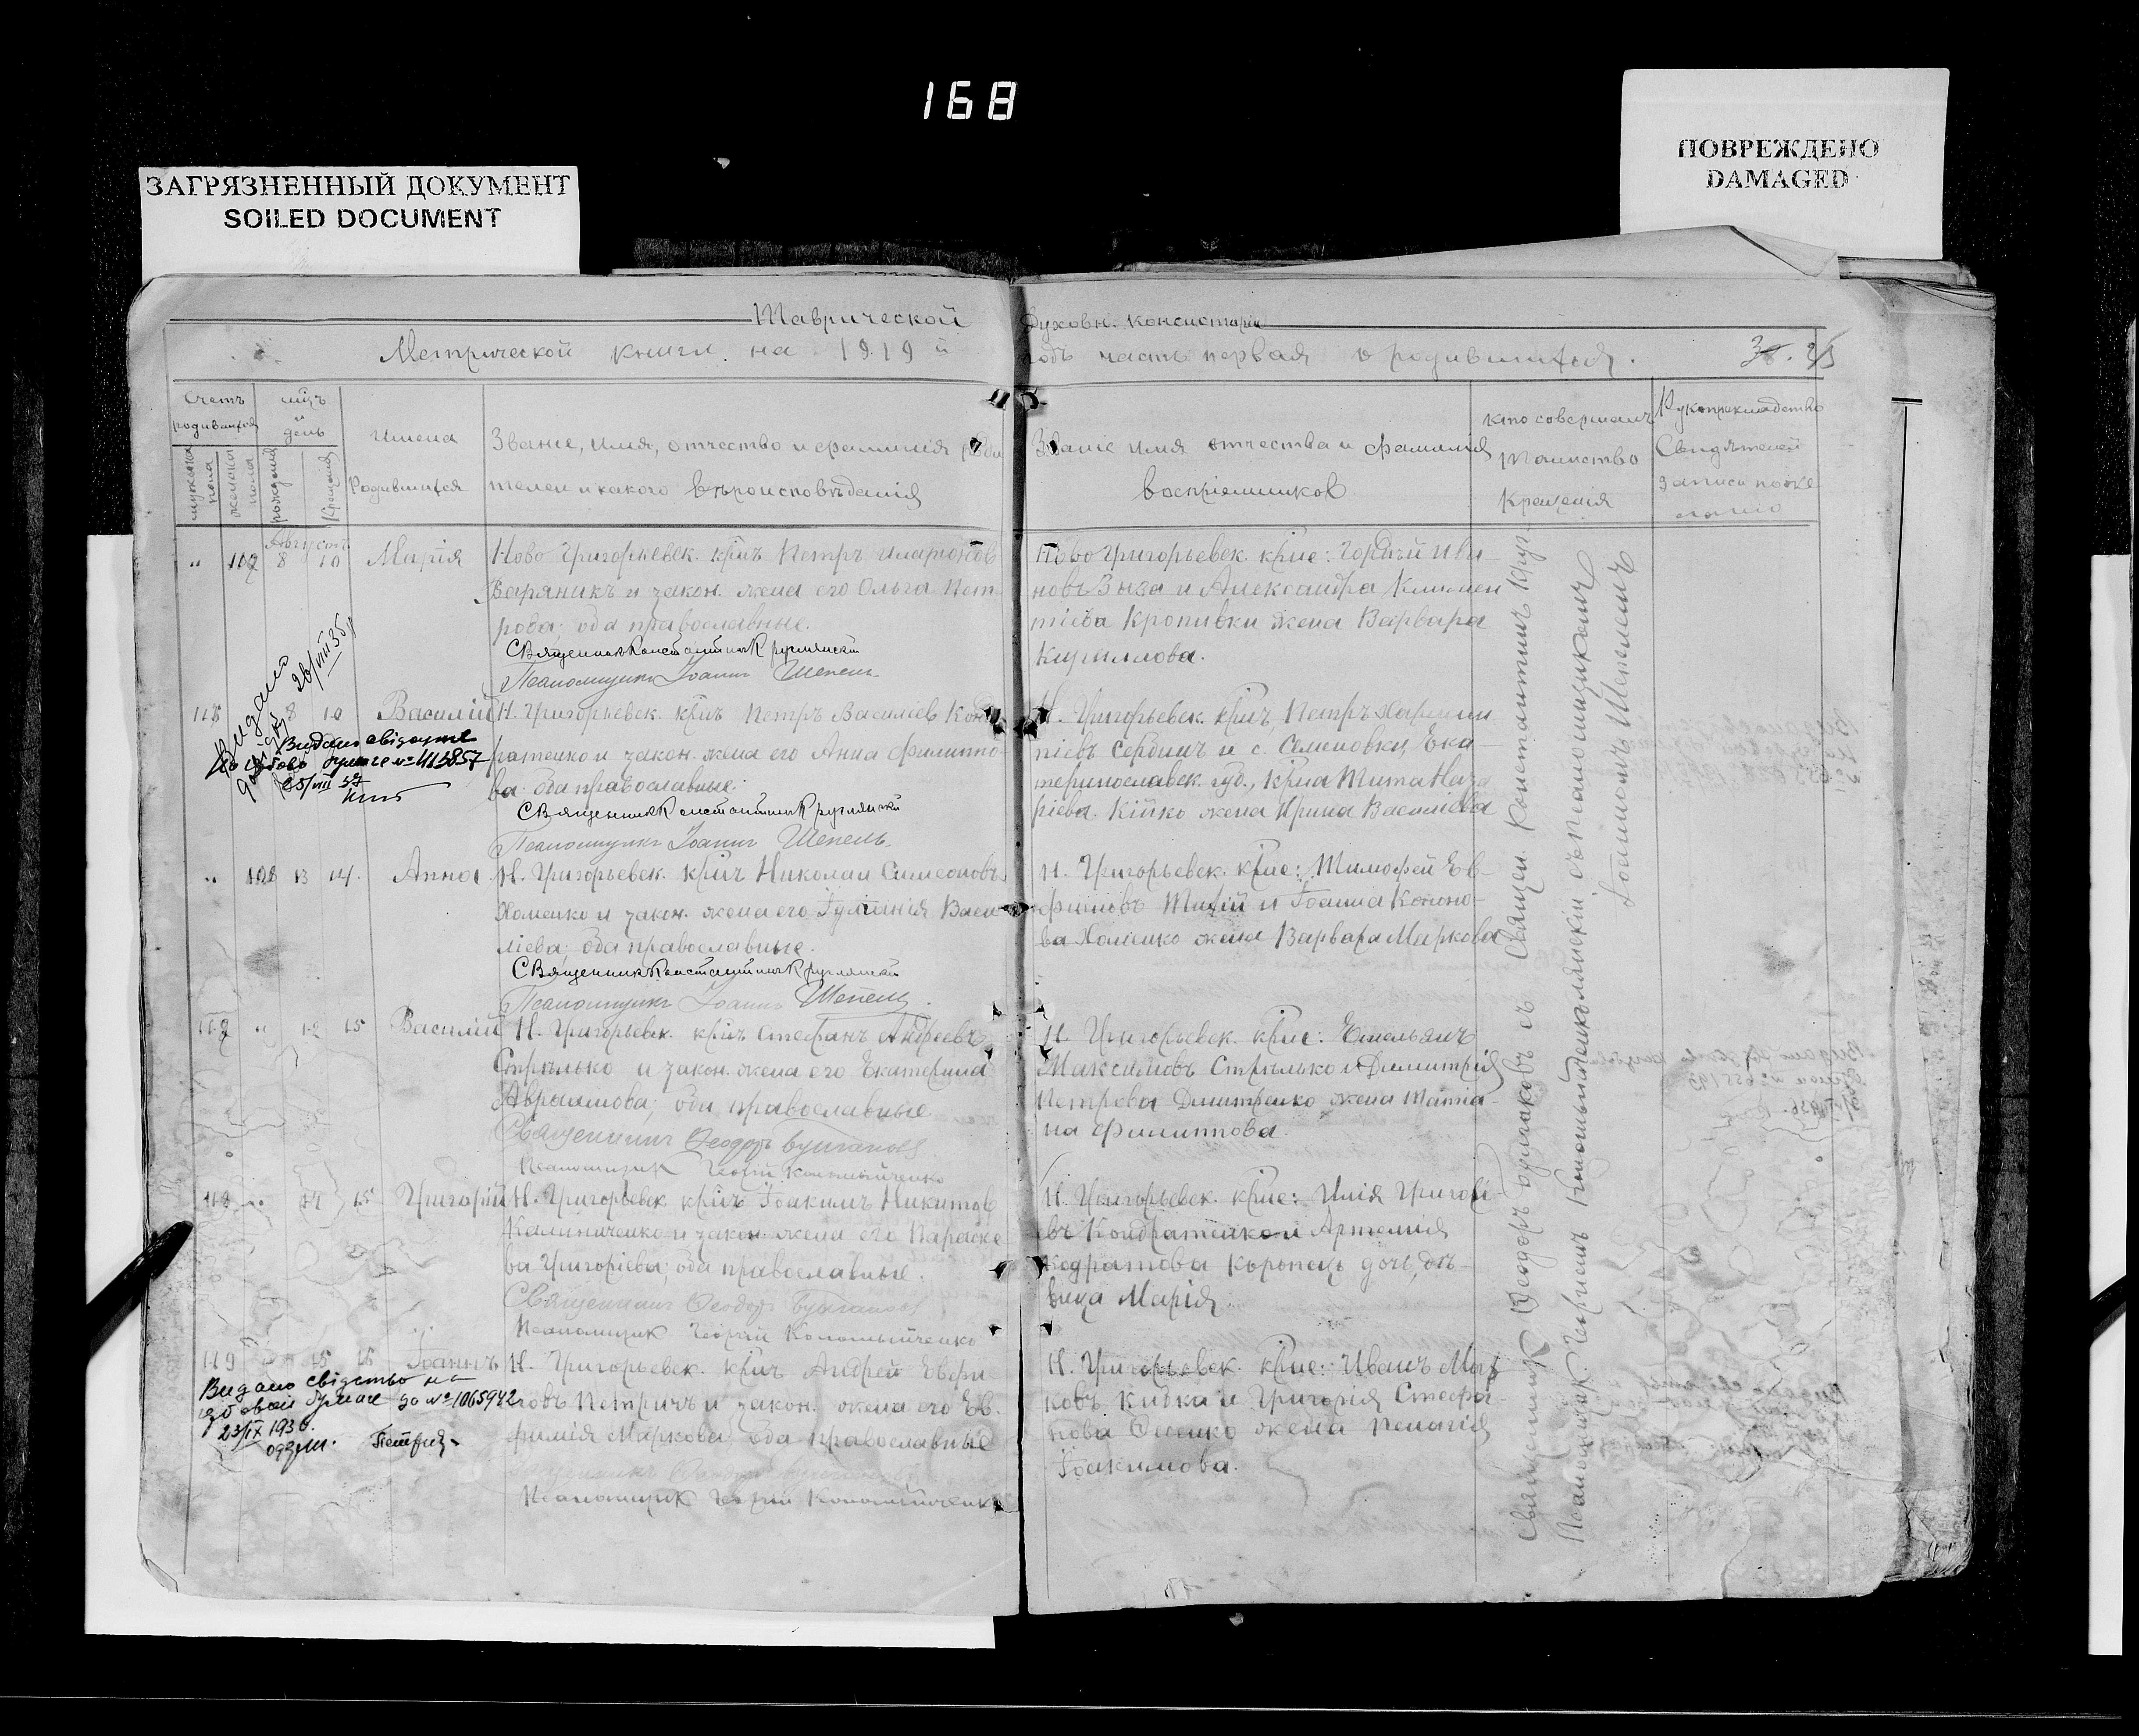 168
ЗАГРЯЗНЕННЫЙ ДОКУМЕНТ
SOILED DOCUMENT
ПОВРЕЖДЕНО
DAMAGED
Таврической Духовн. Консисторіи
Метрической книги на 1919 й годъ часть первая о родившихся.
Счетъ родившихся
мужска пола
женска пола
мцъ и день
рожденія
Крещенія
Имена
Родившихся
Званіе, имя, отчество и фамилія роди
телей и какого вѣроисповѣданія
Званіе имя отчества и фамилія
воспріемниковъ
Кто совершалъ
таинство
Крещенія
Рукоприкладство
Свидѣтелей
записи по же
ланію
Августъ
8 10 Марія
Ново Григорьевск. кр-нъ Петръ Иларіоновъ
Варяникъ и закон. жена его Ольга Пет
рова; оба православные.
Священникъ Константинъ Круглянскій
Псаломщикъ Іоаннъ Шепель
Ново Григорьевск. кр-не: Гордѣй Ива
новъ Зыза и Александра Климен
тіева Кропивки жена Варвара
Кириллова.
8 10 Василій
Н. Григорьевск. кр-нъ Петръ Василіев Конд
ратенко и закон. жена его Анна Филиппо
ва оба православные.
Священникъ Константинъ Круглянскій
Псаломщикъ Іоаннъ Шепель
Н. Григорьевск. кр-нъ, Петръ
піевъ Сердюкъ и с. Семеновки, Ека
теринославск. губ., кр-на Тита Наза
ріева Кійко жена Ирина Василіева
Видано
28/VIII 35 р
Видано свідоцтво
№ 413857
25/VIII 37
13 14 Анна
Н. Григорьевск. кр-нъ Николай Симеоновъ
Хоменко и закон. жена его Іуліанія Васи
ліева; оба православные.
Священникъ Константинъ Круглянскій
Псаломщикъ Іоаннъ Шепель.
Н. Григорьевск. кр-не: Тимофей Ев
фимовъ и Іоанна Конно
ва Хоменко жена Варвара Маркова
12 15 Василій
Н. Григорьевск. кр-нъ Стефанъ Андреевъ
Стрѣлько и закон. жена его Екатерина
Авраамова; оба православные
Священникъ Ѳеодоръ
Псаломщик Георгій Коломыйченко
Н. Григорьевск. кр-не: Емельянъ
Максимовъ Стрѣлько и Димитрія
Петрова Дмитренко жена Татіа
на Филиппова.
118 14 15 Григорій
Н. Григорьевск. кр-нъ Іоакимъ Никитов
Калиниченко и закон. жена его Параске
ва Григоріева; оба православные.
Священникъ Ѳеодоръ
Псаломщик Георгій Коломыйченко
Н. Григорьевск. кр-не: Илія Григорі
евъ Кондратенко и Артемія
Кодратова Коропецъ дочь, дѣ
вица Марія.
119 15 15 Іоаннъ
Н. Григорьевск. кр-нъ Андрей Евфи
мовъ Петричъ и закон. жена его Ев
фимія Маркова оба православные
Псаломщик Георгій Коломыйченко
Н. Григорьевск. кр-не: Иванъ Мар
ковъ Кибка и Григорія Стефа
нова Оленко жена Пелагія
Іоакимова.
Видано свідоцтво на
гербовом бумаге за № 1065942
23/IX 1936.
Петрич
Священ. Константинъ Круг-
лянскій съ псаломщикомъ
Іоанномъ Шепелемъ
Священникъ Ѳеодоръ съ
Псаломщик. Георгіемъ Коломыйченко